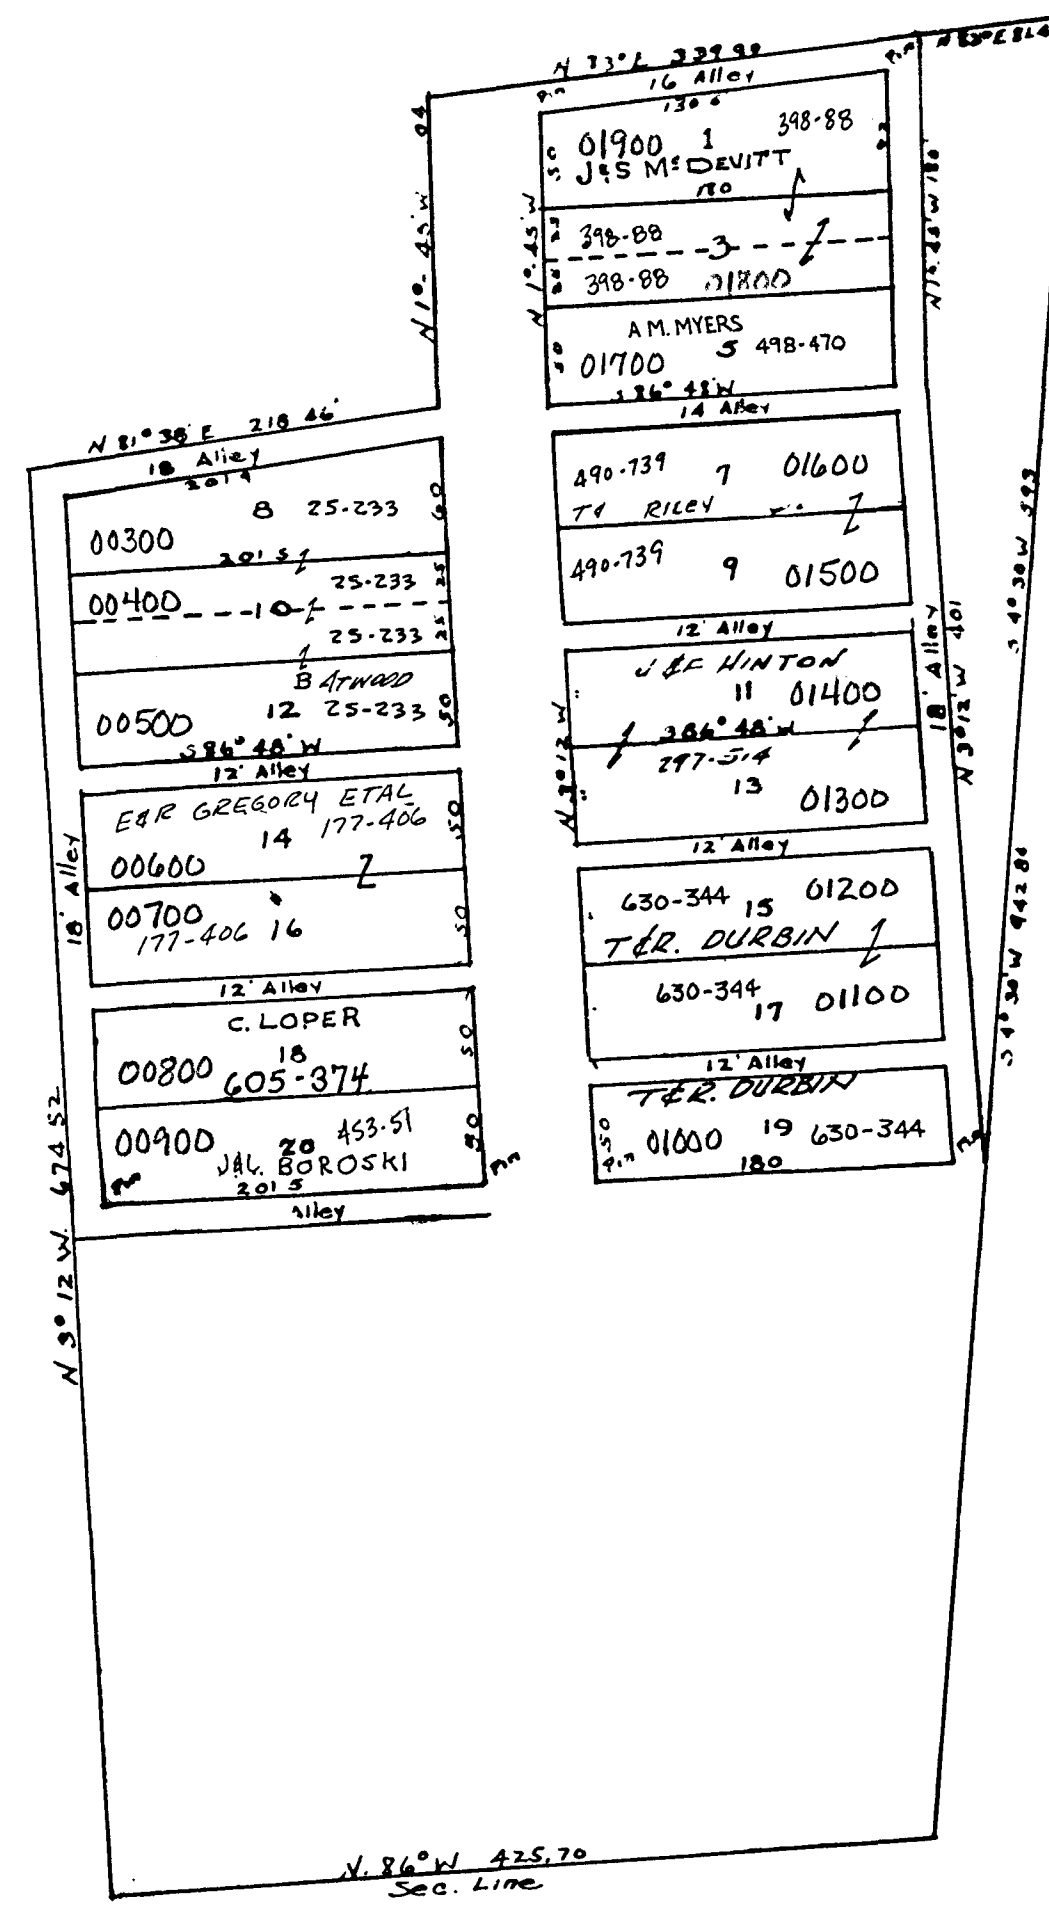 N 83° E 339 99
16 Alley
Pin
Pin
01900 1 398-88
J&S McDEVITT
50
180
N 1°-45' W
N 1°-45' W
398-88
25
3
398-88 01800
A M. MYERS
01700 5 498-470
50
S 86° 48' W
14 Alley
N 81° 38' E 218 46'
18 Alley
201 9
8 25-233
60
00300
201 5
00400 25-233
25
10
25-233
25
B ATWOOD
00500 12 25-233
50
S 86° 48' W
12' Alley
E&R GREGORY ETAL
14 177-406
50
00600
00700
177-406 16
50
18' Alley
12' Alley
C. LOPER
18
00800 605-374
50
00900 20 453-51
J&L. BOROSKI
50
Pin
Pin
201 5
Alley
N 3° 12 W. 674 52
490-739 7 01600
RILEY
490-739 9 01500
12' Alley
J &F HINTON
11 01400
S 86° 48' W
297-514
13 01300
N 3° 12 W
12' Alley
630-344 15 01200
T&R. DURBIN
630-344 17 01100
12' Alley
T&R. DURBIN
01000 19 630-344
50
Pin
Pin
180
18' Alley
N 3° 12' W 401
S 4° 30 W 593
S 4° 30' W 942 80
N. 86° W 425.70
Sec. Line